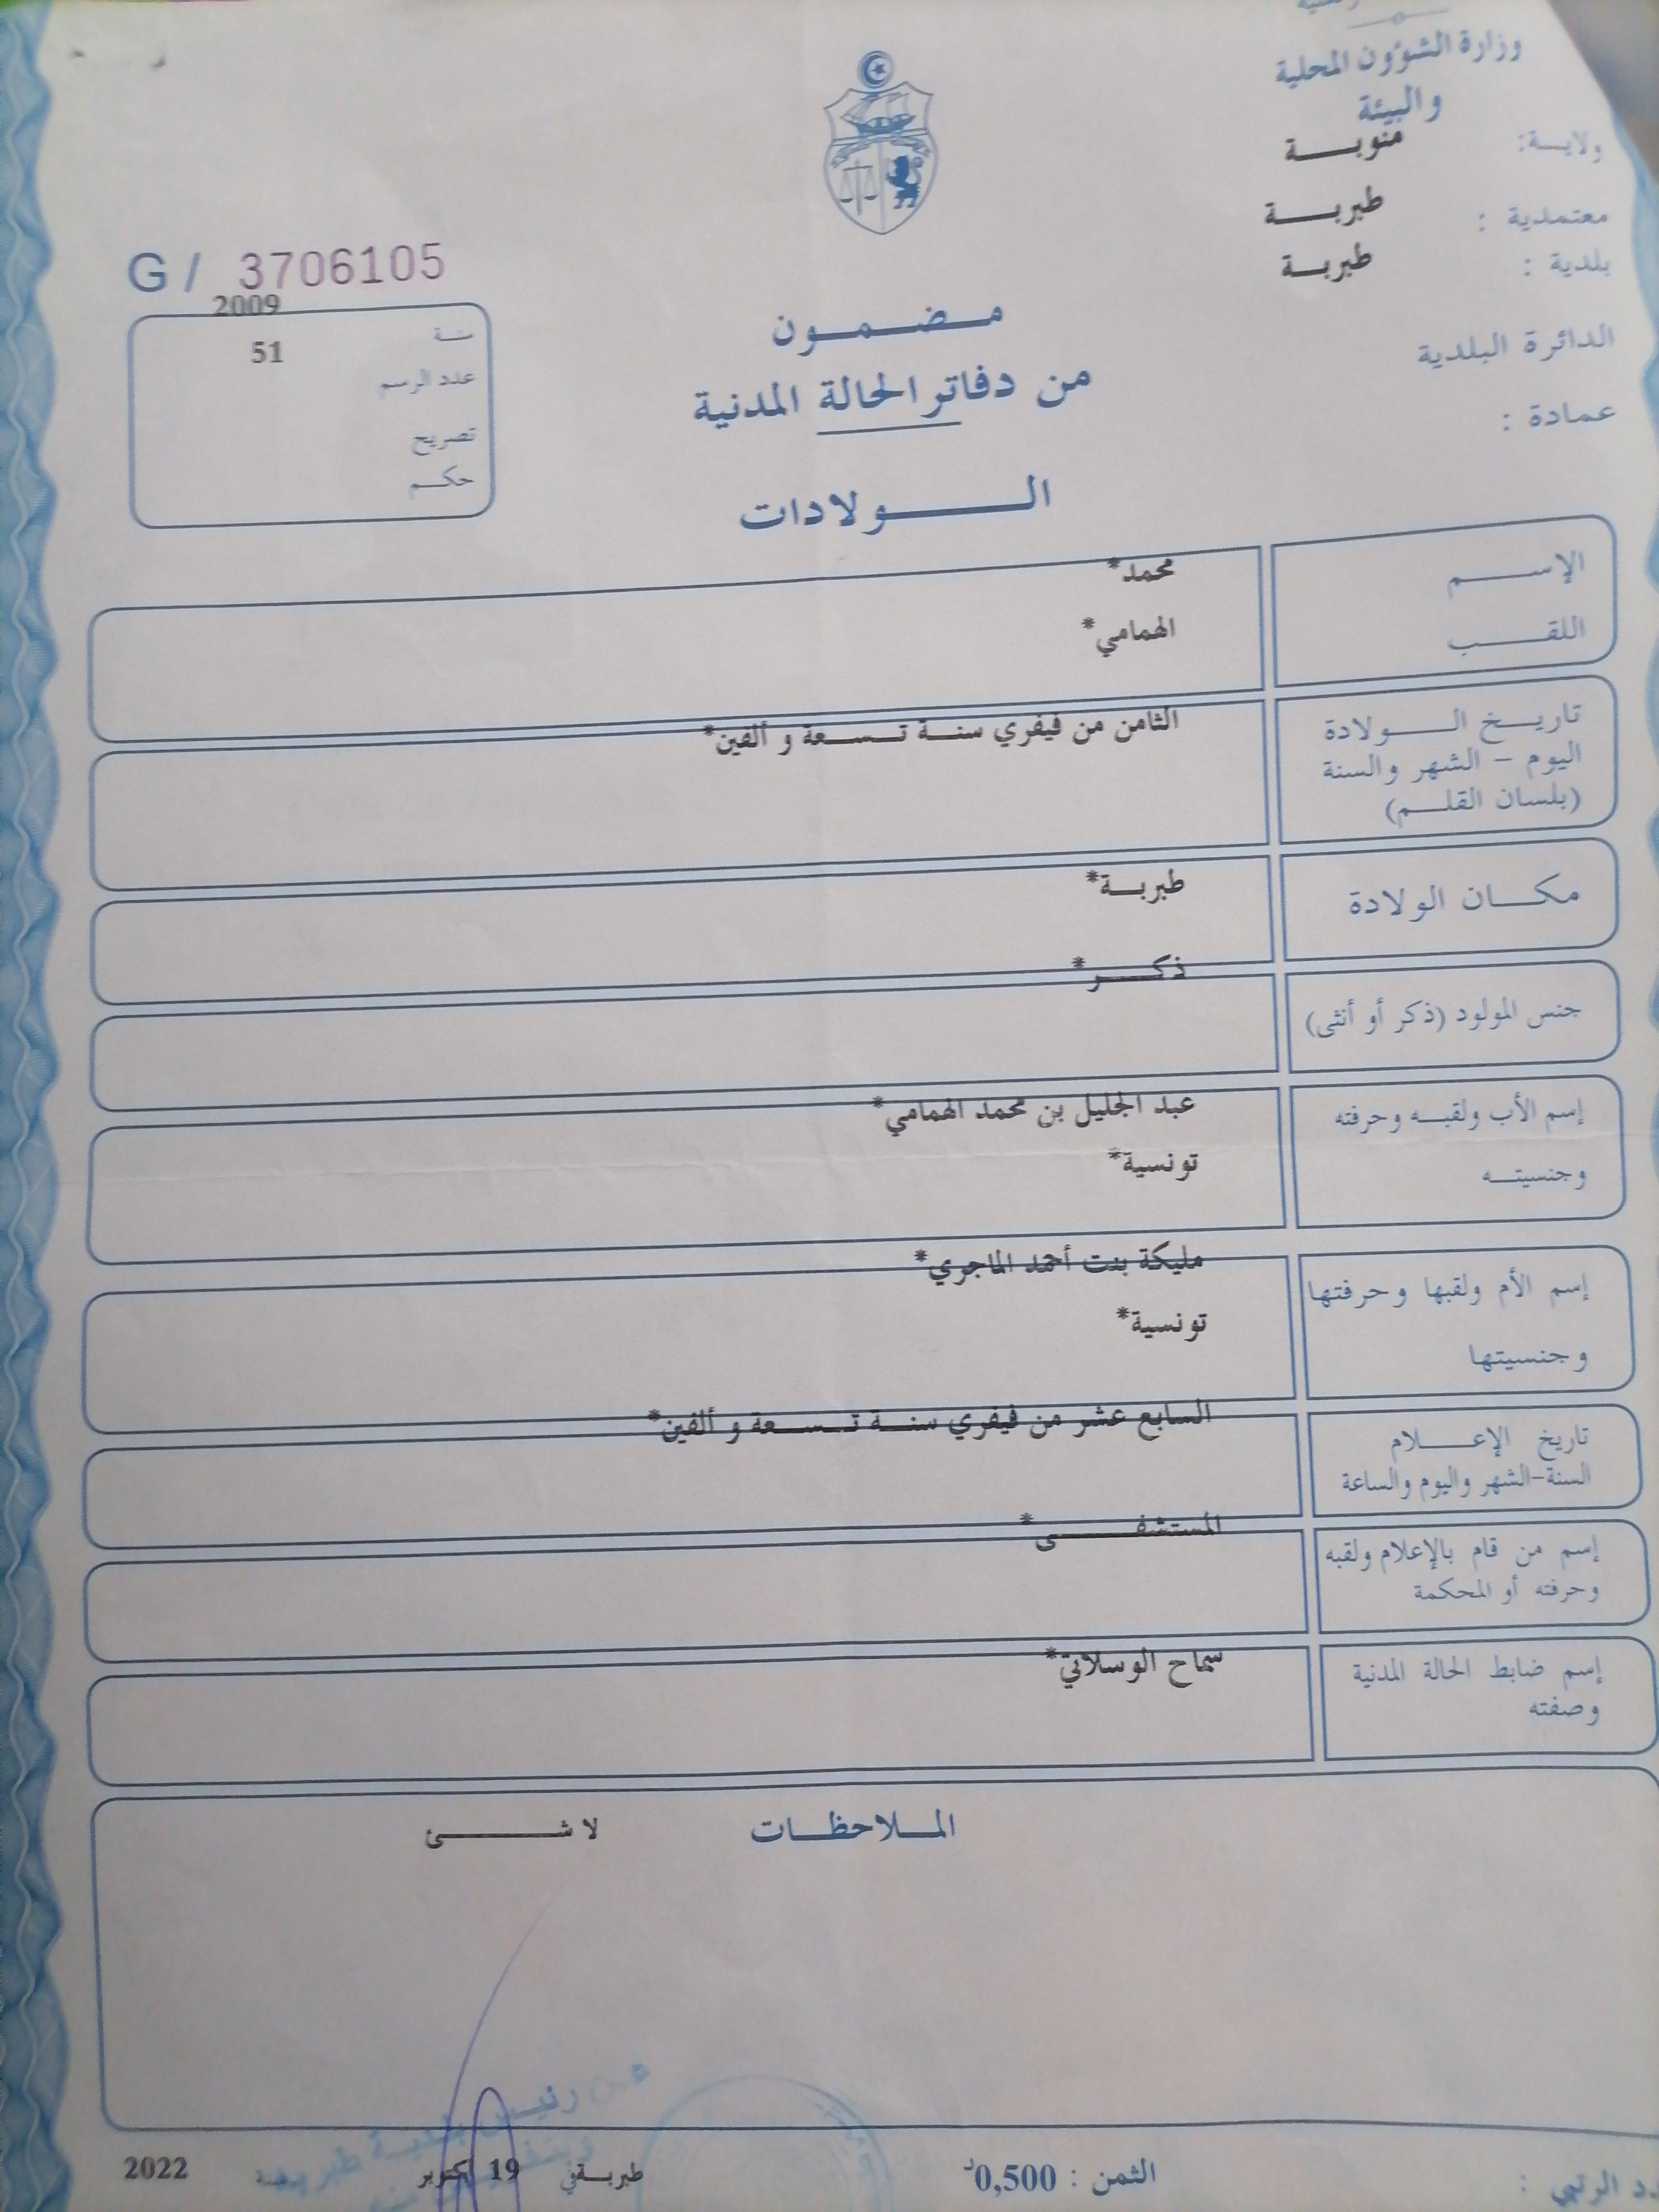 وزارة الشؤون المحلية
والبيئة
ولاية: منوبة
معتمدية : طبربة
بلدية : طبربة
الدائرة البلدية
عمادة :
G / 3706105
سنة 2009
عدد الرسم 51
تصريح
حكم
مضمون
من دفاتر الحالة المدنية
الولادات
الإسم محمد*
اللقب الهمامي*
تاريخ الولادة
اليوم - الشهر والسنة
(بلسان القلم)
الثامن من فيفري سنة تسعة و ألفين*
مكان الولادة طبربة*
جنس المولود (ذكر أو أنثى) ذكر*
إسم الأب ولقبه وحرفته عبد الجليل بن محمد الهمامي*
وجنسيته تونسية*
إسم الأم ولقبها وحرفتها مليكة بنت أحمد الماجري*
وجنسيتها تونسية*
تاريخ الإعلام
السنة-الشهر واليوم والساعة
السابع عشر من فيفري سنة تسعة و ألفين*
إسم من قام بالإعلام ولقبه
وحرفته أو المحكمة
المستشفى*
إسم ضابط الحالة المدنية
وصفته
سماح الوسلاتي*
الملاحظات لا شئ
عن رئيس بلدية طبربة
الثمن : 0,500د
طبربة في 19 أكتوبر 2022